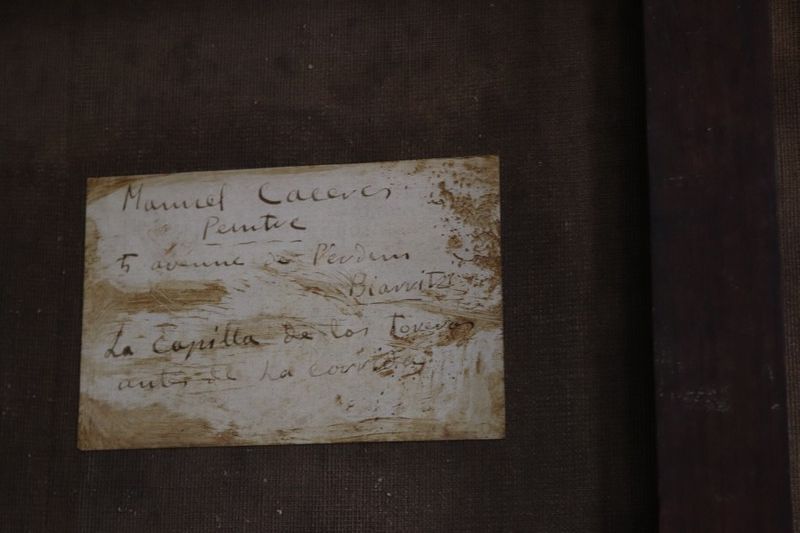 Manuel Caceres
Peintre
5 avenue de Verdun
Biarritz
La Capilla de los toreros
antes de La Corrida